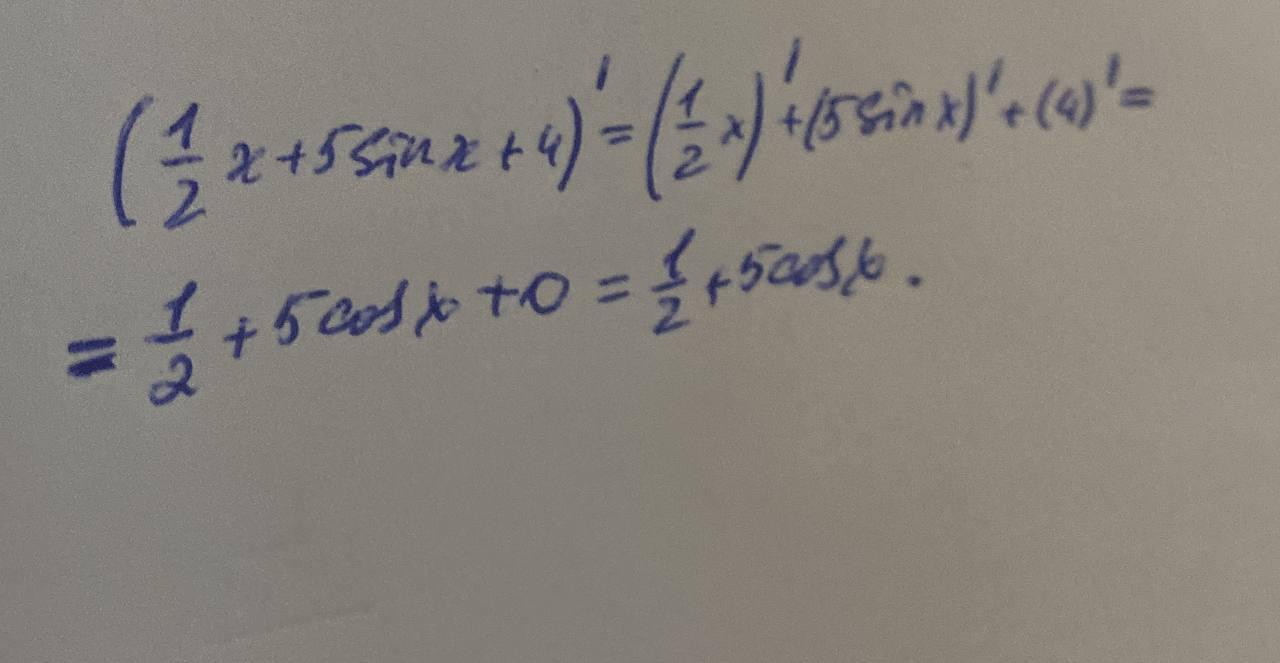 (1/2 x + 5 sin x + 4)' = (1/2 x)' + (5 sin x)' + (4)' =
= 1/2 + 5 cos x + 0 = 1/2 + 5 cos x.